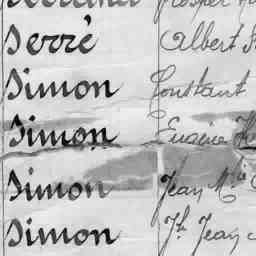 Serré Albert
Simon Constant
Simon Eugène
Simon Jean
Simon Jh Jean